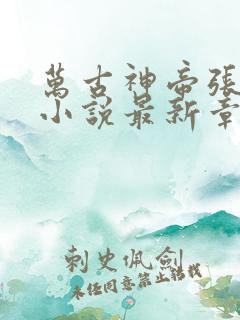 萬古神帝張
小說最新章
刺史佩劍
未經同意禁止轉載